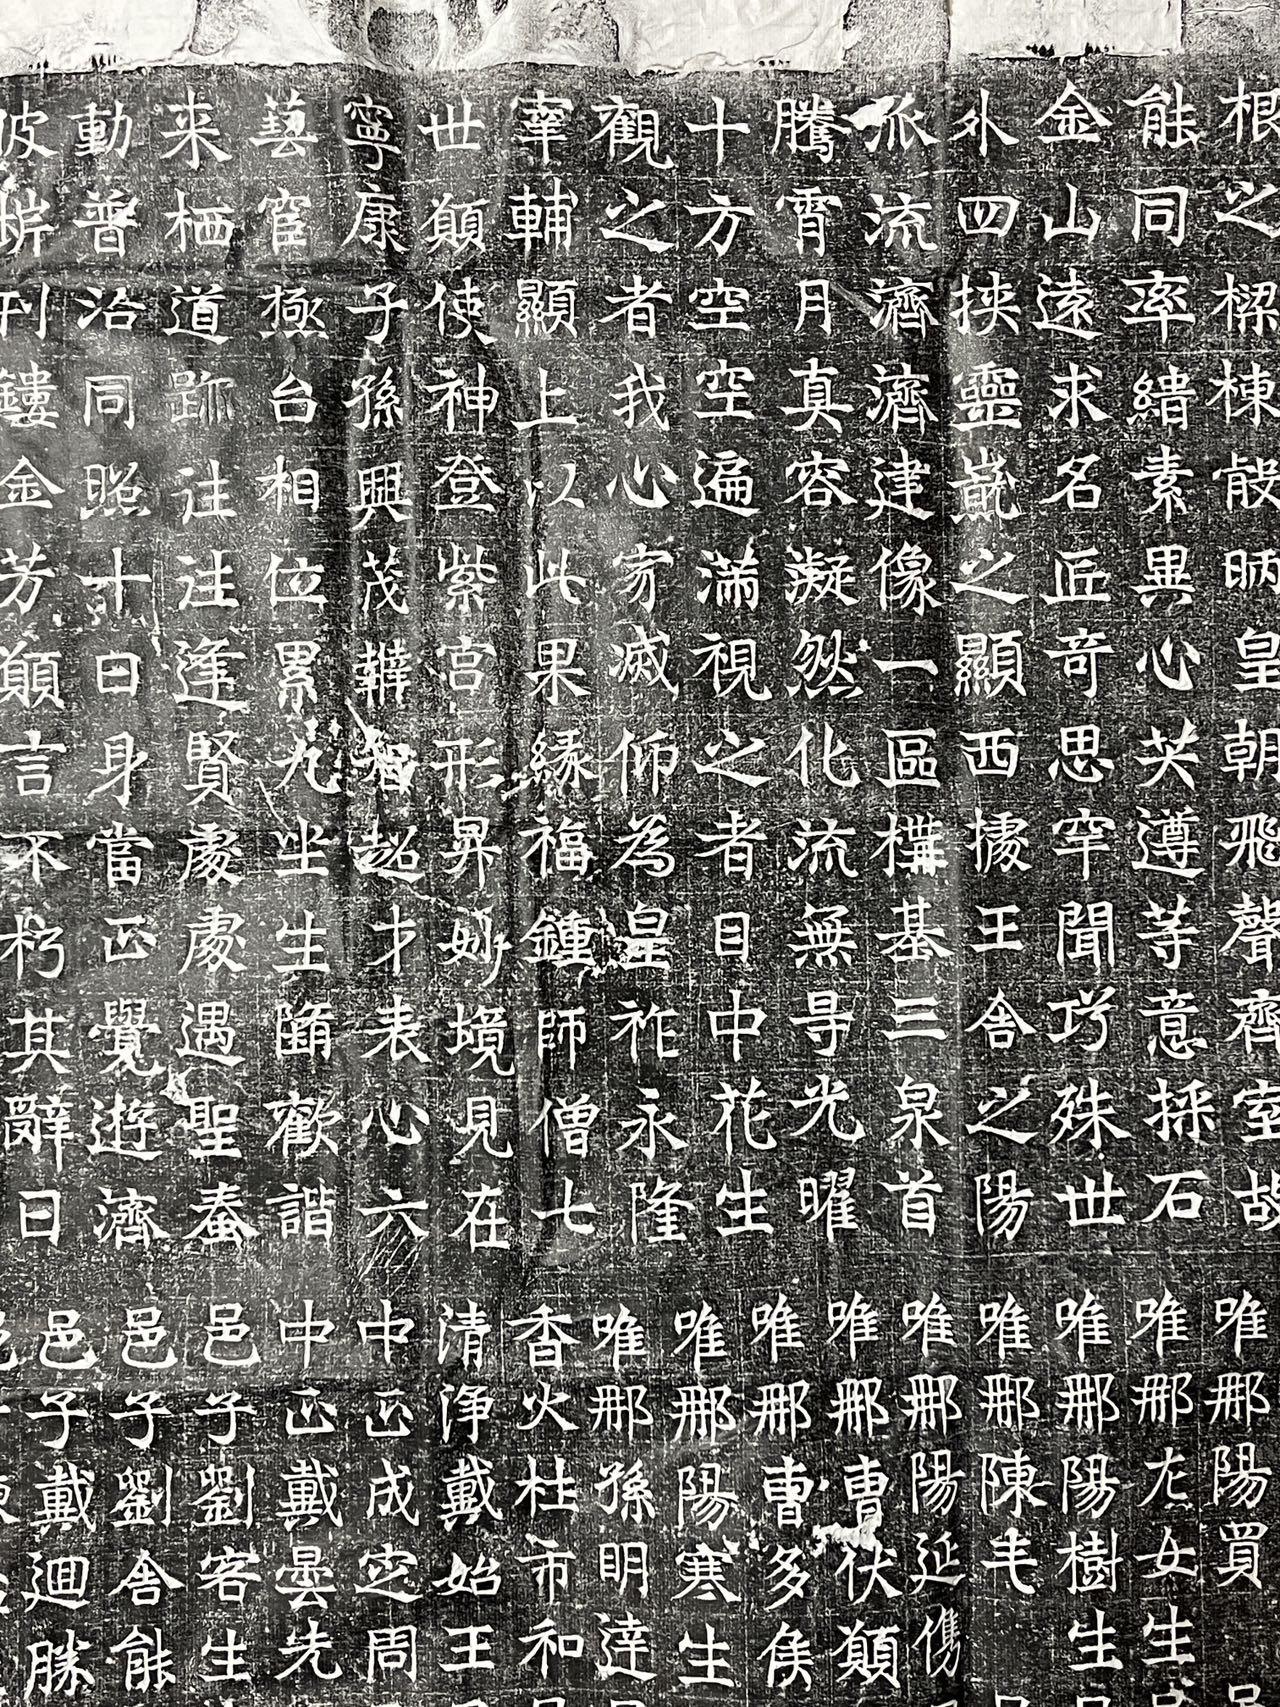 根之樑棟殷昞皇朝飛聲齊室故
能同率緇素異心共遵等意採石
金山遠求名匠奇思罕聞巧殊世
外四挾靈之顯西據王舍之陽
派流濟濟建像一區楪基三泉首
騰霄月真容凝然化流無㝵光曜
十方空空遍滿視之者目中花生
觀之者我心寂滅仰為皇祚永隆
宰輔顯上以此果緣福鍾師僧七
世願使神登紫宮形昇妙境見在
寧康子孫興茂韡智超才表心六
藝宦極台相位累九坐生隨歡諧
来栖道跡往往逢賢處處遇聖蚕
動普沿同照十日身當正覺遊濟
彼刊鏤金芳願言不朽其辭曰
唯那陽買
唯那左女生
唯那陽樹生
唯那陳毛
唯那陽延儁
唯那曹伏願
唯那曹多侯
唯那陽寒生
唯那孫明達
香火杜市和
清淨戴始王
中正成定周
中正戴曇先
邑子劉客生
邑子劉舍能
邑子戴迴勝